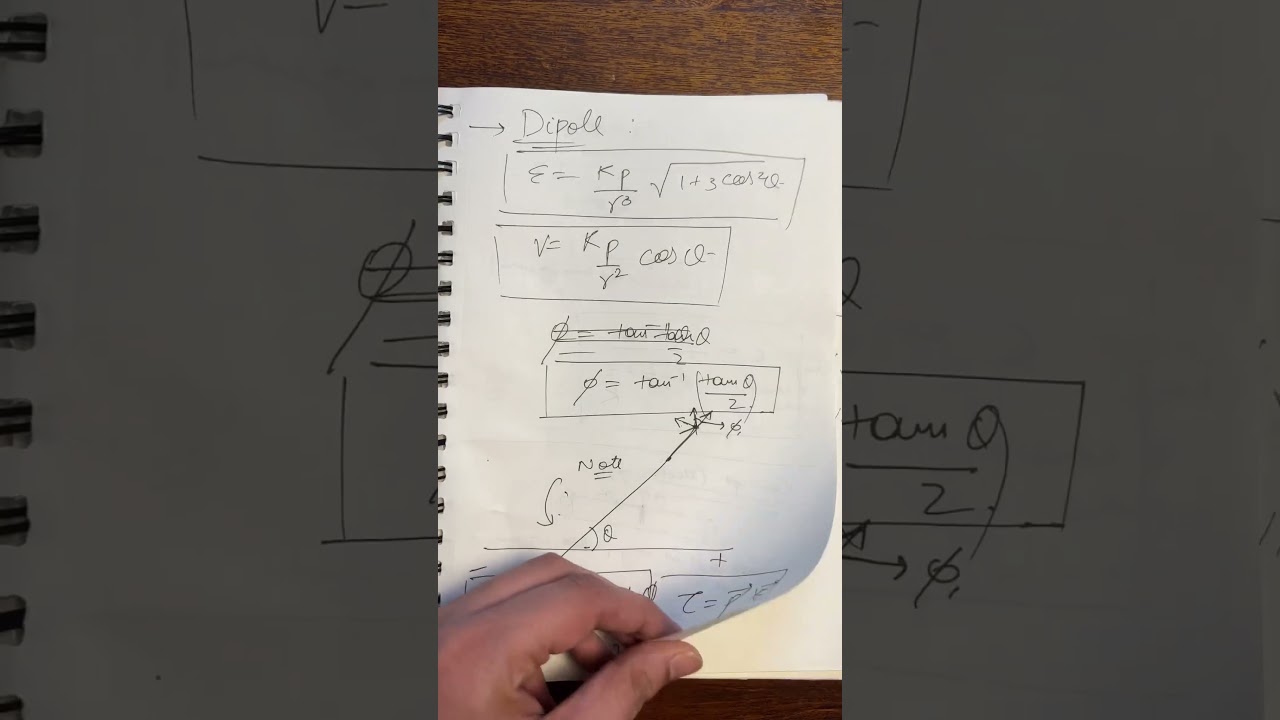 → Dipole :
E = Kp/r³ √1+3cos²θ
V = Kp/r² cosθ
ϕ = tan⁻¹ (tanθ/2)
ϕ
Note
θ
+
τ = p⃗ ×